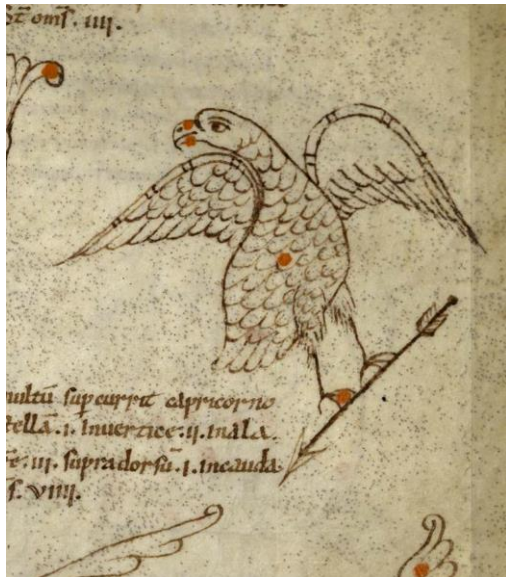 om̅s̅ . iiii.
sup̱currit capricorno
.i. Inuertice: ii. inala.
iii. supra dorsū .i. incauda
viiii.